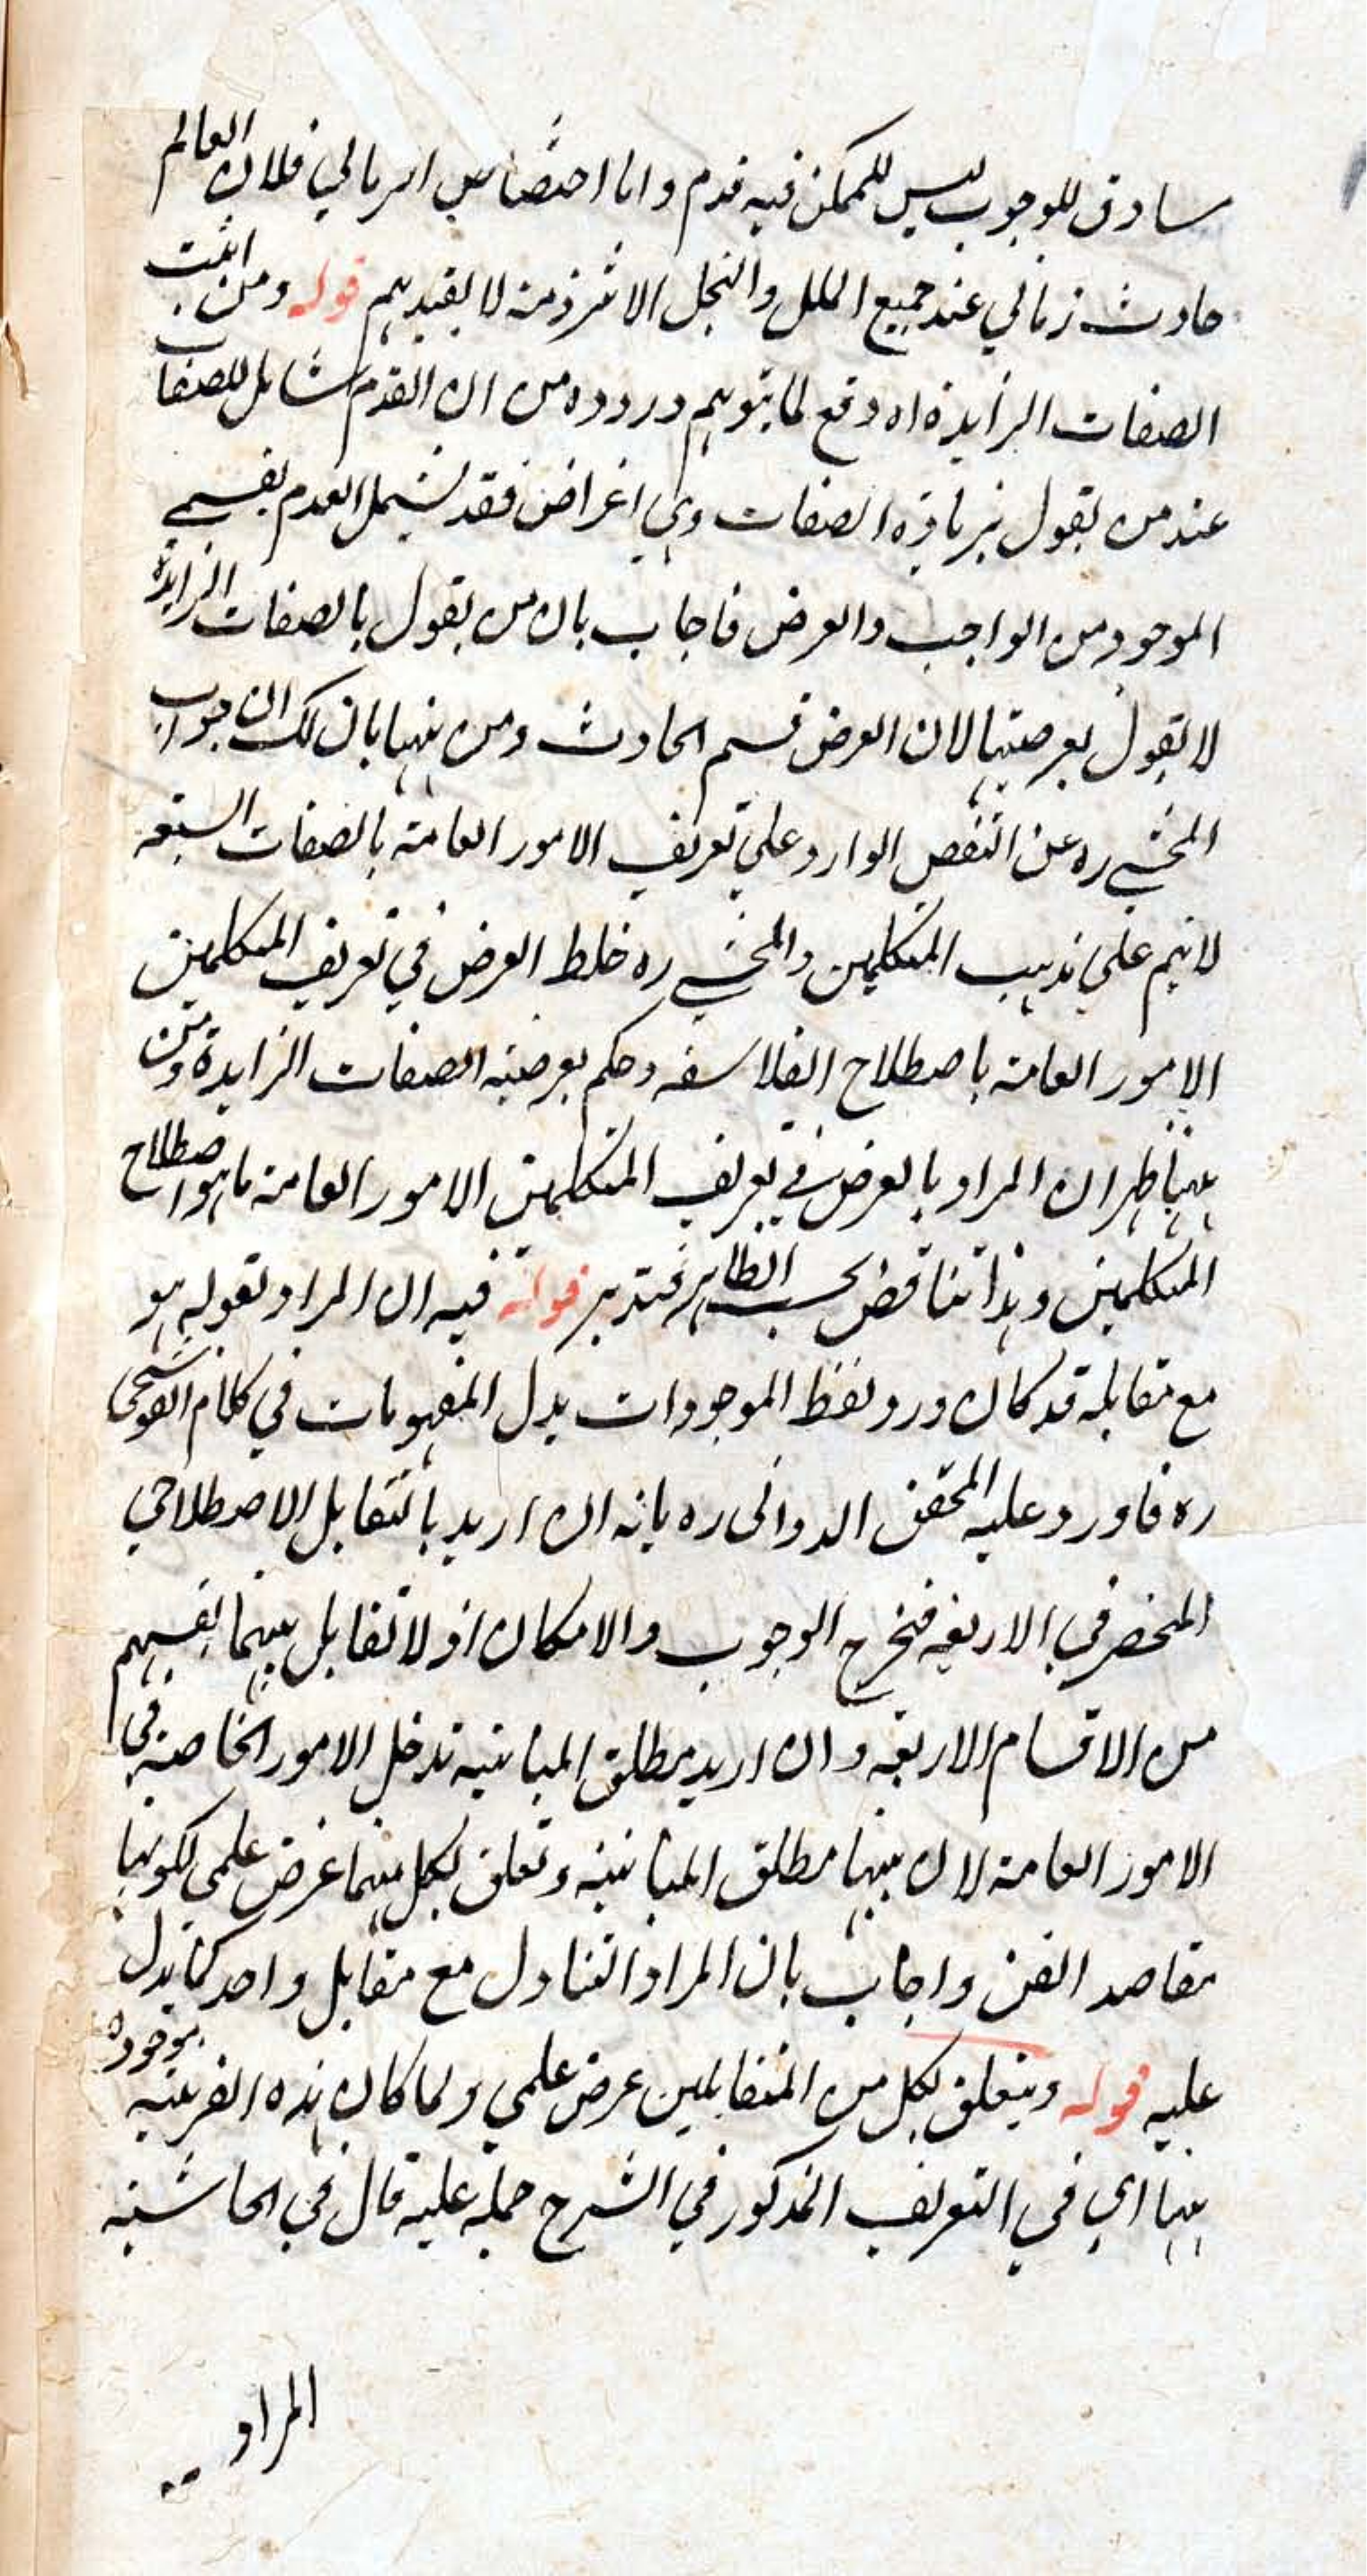 ساوق للوجوب ليس للممكن فيه قدم واما اختصاص الزماني فلان العالم
حادث زماني عند جميع الملل والنحل الا شرذمة لا يعتد بهم قوله ومن اثبت
الصفات الزايدة اه دفع لما يتوهم وروده من ان القدم شامل للصفات
عند من يقول بزيادة الصفات وهي اعراض فقد يشمل القدم بقسمي
الموجود من الواجب والعرض فاجاب بان من يقول بالصفات الزايدة
لا يقول بعرضيتها لان العرض قسم الحادث ومن ههنا بان لك ان جواب
المحشي ره عن النقض الوارد علي تعريف الامور العامة بالصفات السبعة
لا يتم علي مذهب المتكلمين والمحشي ره خلط العرض في تعريف المتكلمين
الامور العامة باصطلاح الفلاسفه وحكم بعرضية الصفات الزايدة ومن
ههنا ظهر ان المراد بالعرض في تعريف المتكلمين الامور العامة ما هو اصطلاح
المتكلمين وهذا تناقض بحسب الظاهر فتدبر قوله فيه ان المراد بقوله هو
مع مقابله قد كان ورد لفظ الموجودات بدل المفهومات في كلام القوشجي
ره فاورد عليه المحقق الدواني ره بانه ان اريد بالتقابل الاصطلاحي
المنحصر في الاربعة فخرج الوجوب والامكان اذ لا تقابل بينهما بقسم
من الاقسام الاربعة وان اريد مطلق المباينة تدخل الامور الخاصة في
الامور العامة لان بينها مطلق المباينة وتعلق بكل منهما غرض علمي لكونها
مقاصد الفن واجاب بان المراد التناول مع مقابل واحد كما يدل
عليه قوله ويتعلق بكل من المتقابلين غرض علمي ولما كان هذه القرينة موجودة
ههنا اي في التعريف المذكور في الشرح حمله عليه قال في الحاشية
المراد